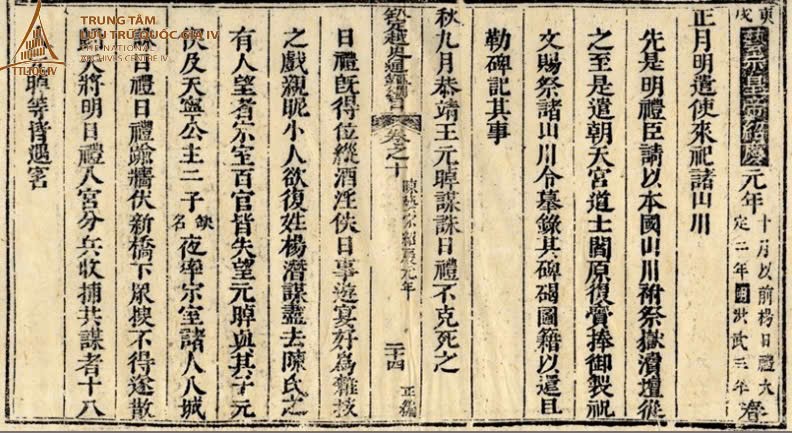 TRUNG TÂM
LƯU TRỮ QUỐC GIA IV
THE NATIONAL
ARCHIVES CENTRE IV
TTLTQG IV
庚戌
藝宗皇帝紹慶元年
十月以前楊日禮大
定二年明洪武三年
春
正月明遣使來祀諸山川
先是明禮臣請以本國山川祔祭嶽瀆壇從
之至是遣朝天宮道士閻原復賫捧御製祝
文賜祭諸山川令摹錄其碑碣圖籍以還且
勒碑記其事
秋九月恭靖王元晫謀誅日禮不克死之
欽定越史通鑑綱目 卷之十 陳藝宗紹慶元年 二十四 正編
日禮旣得位縱酒淫佚日事遊宴好爲雜技
之戲親昵小人欲復姓楊潛謀盡去陳氏之
有人望者宗室百官皆失望元晫與其子元
偰及天寧公主二子缺名夜率宗室諸人入城
誅日禮日禮踰牆伏新橋下衆搜不得遂散
歸天將明日禮入宮分兵收捕共謀者十八
人元晫等皆遇害